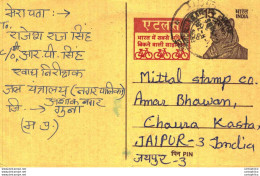 मेरा पता:-
To,
राजेश राज सिंह
C/o, आर. पी. सिंह
खाद्य निरीक्षक
जन यंत्रालय (नगर पालिका)
अशोक नगर
जि:-> गुना
(म.प्र.)
एटलस
भारत में सबसे अधिक
बिकने वाली साईकिल
भारत
INDIA
Mittal stamp co.
Amar Bhawan,
Chaura Rasta,
JAIPUR-3 India
जयपुर-3
पिन PIN